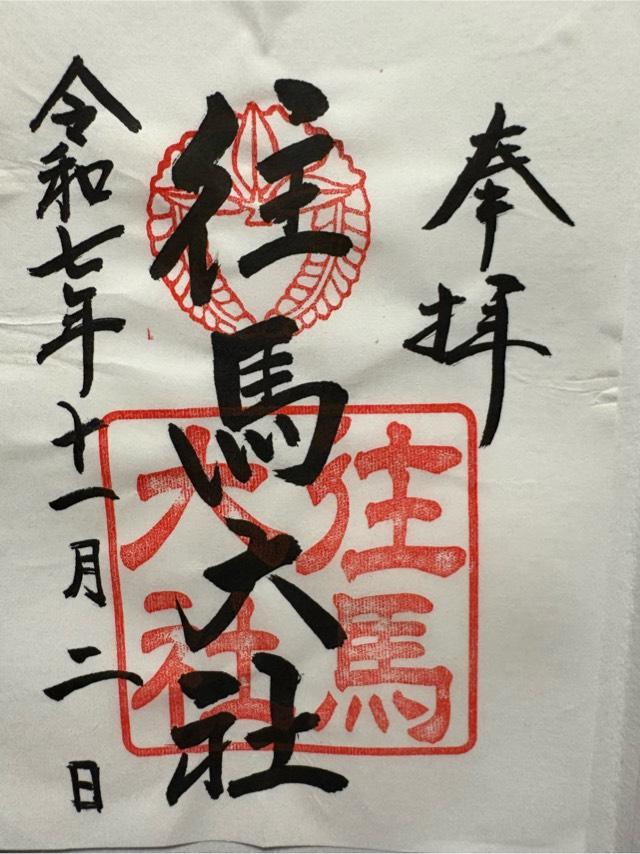 奉拝
往馬大社
往馬
大社
令和七年十一月二日